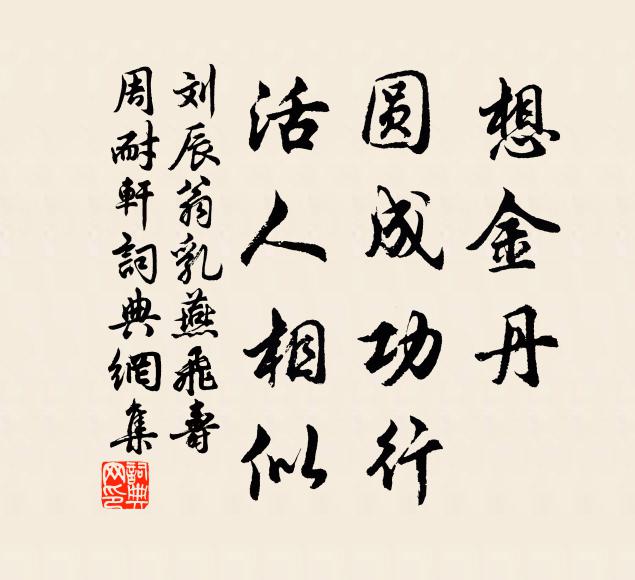 想金丹
圆成功行
活人相似
刘辰翁乳燕飞寿
周耐軒詞典網集
詞典
网印